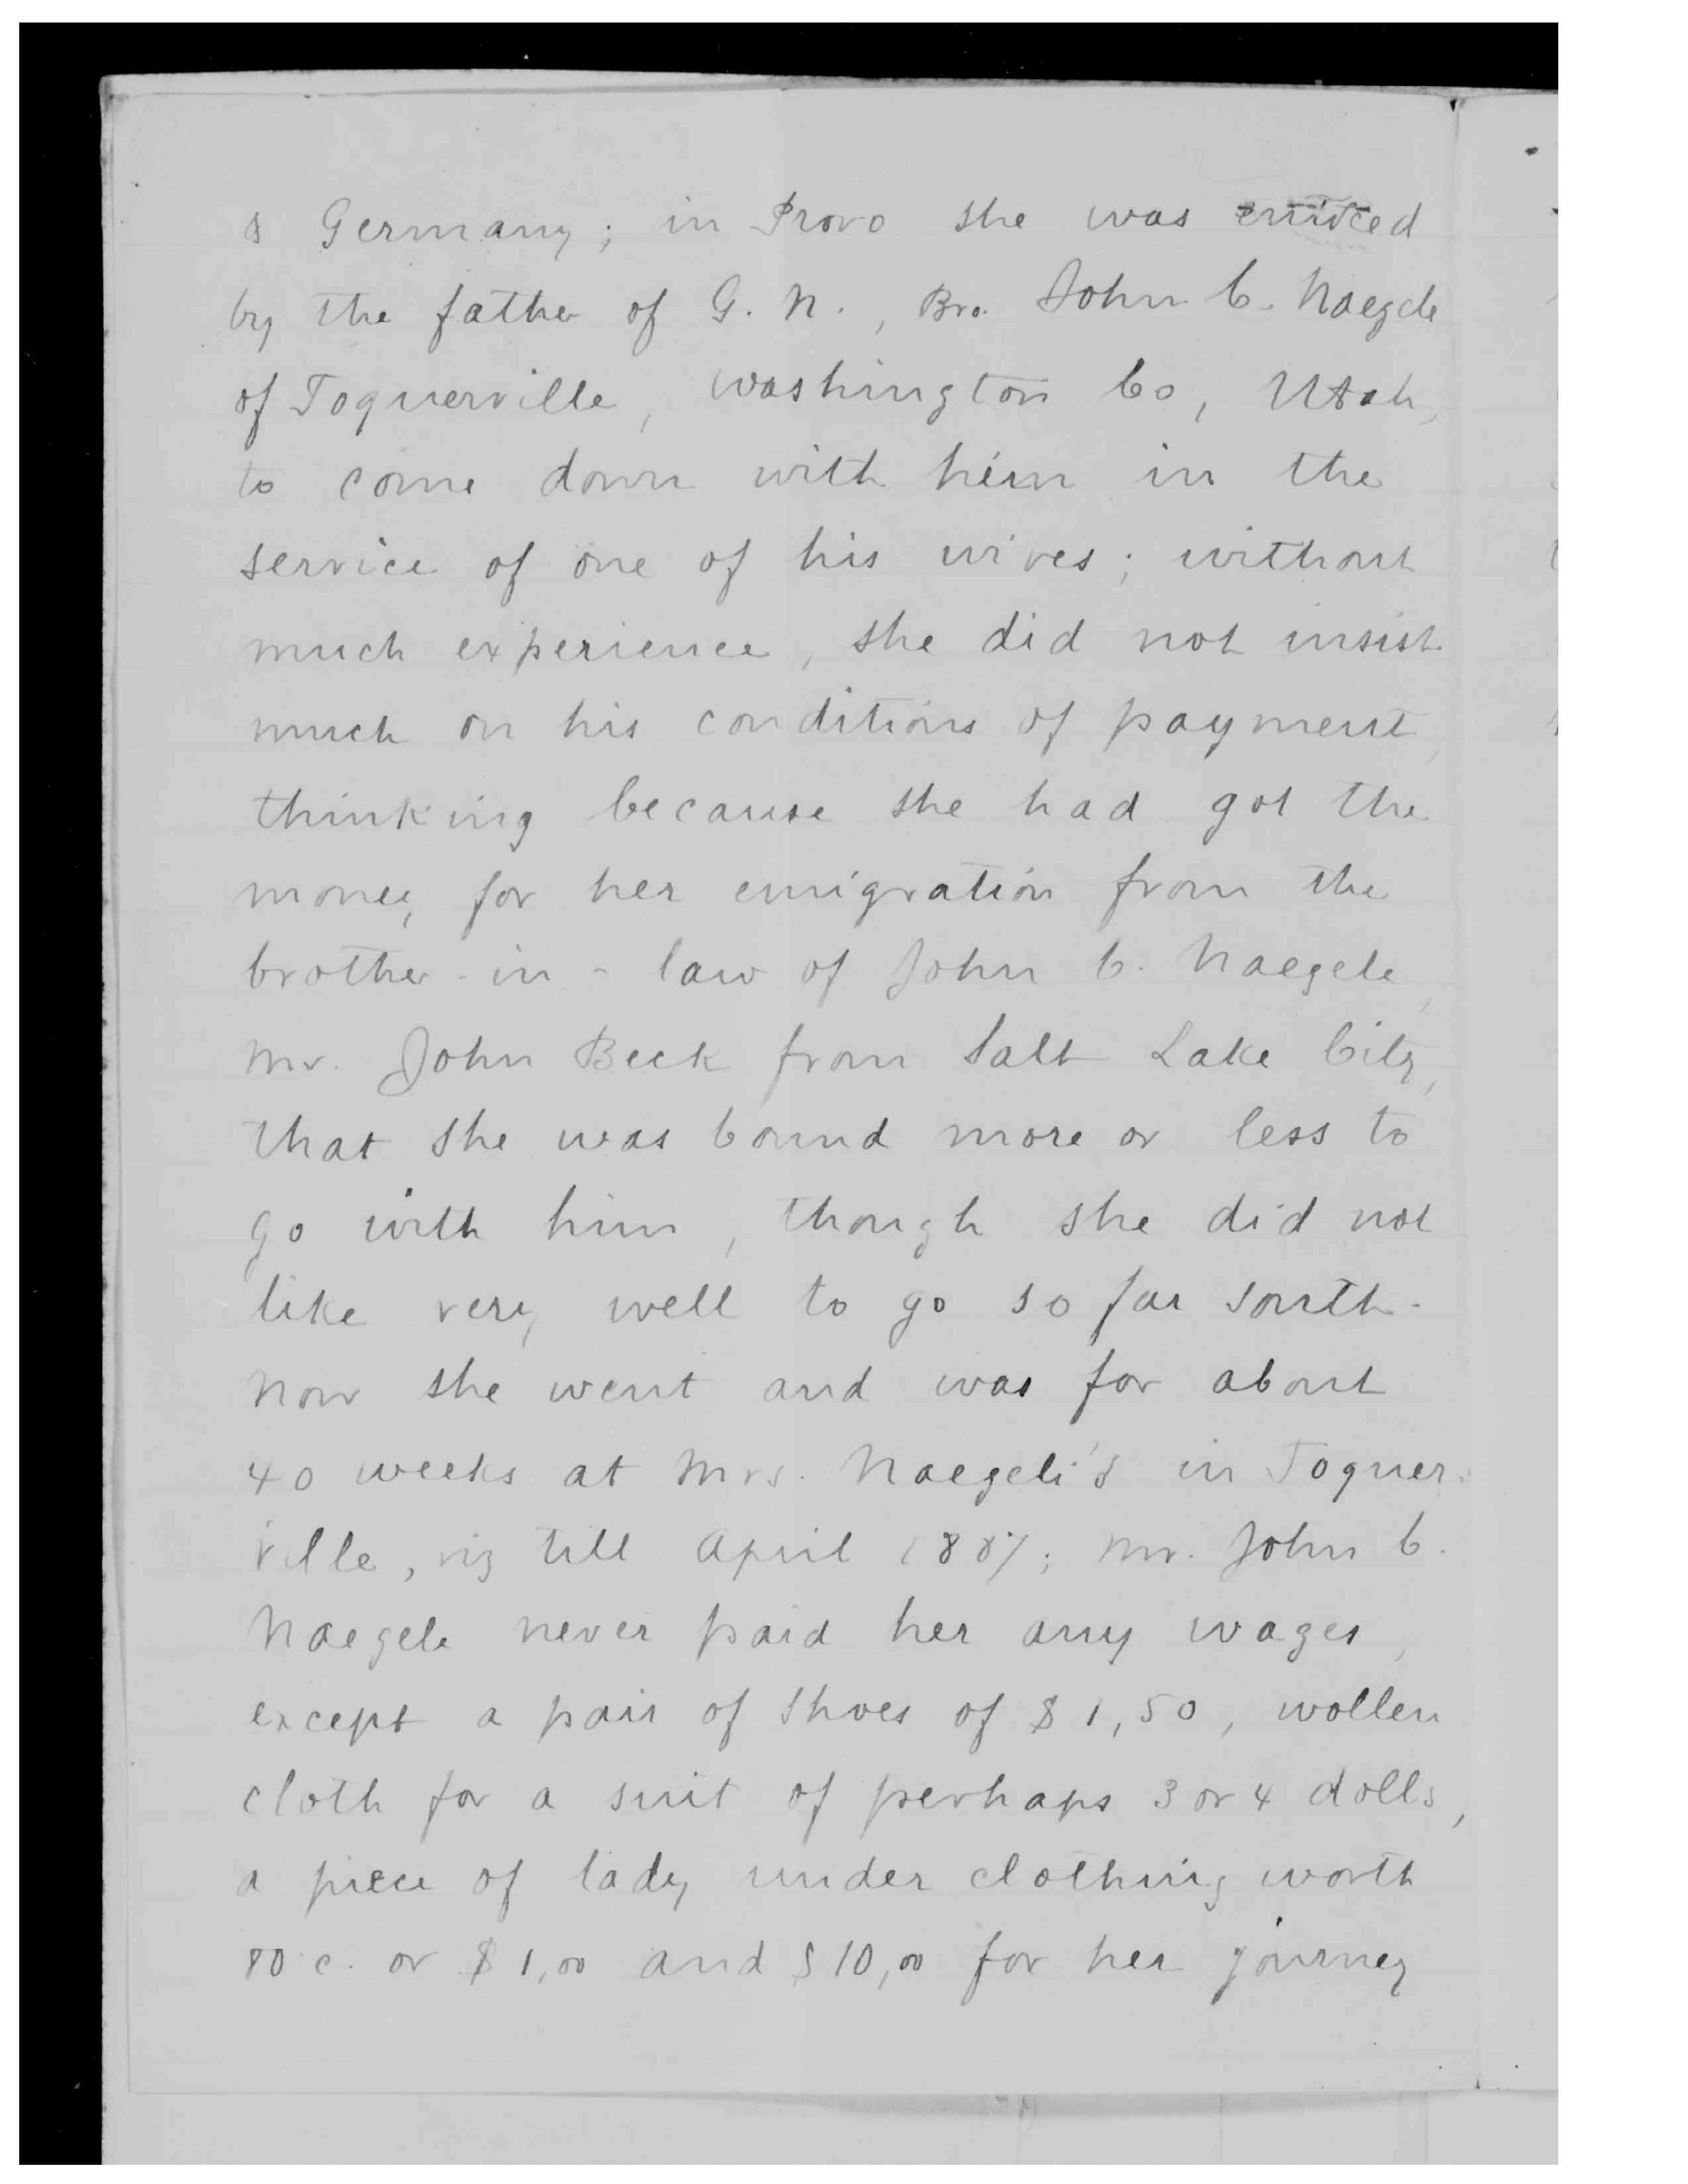 & Germany; in Provo she was enticed
by the father of G. N., Bro. John C. Naegele
of Toquerville, Washington Co, Utah,
to come down with him in the
service of one of his wives; without
much experience, she did not insist
much on his conditions of payment,
thinking because she had got the
money for her emigration from the
brother-in-law of John C. Naegele,
Mr. John Beck from Salt Lake City,
that she was bound more or less to
go with him, though she did not
like very well to go so far south.
Now she went and was for about
40 weeks at Mrs. Naegeli's in Toquer-
ville, viz till April 1887; Mr. John C.
Naegele never paid her any wages,
except a pair of shoes of $1,50, wollen
cloth for a suit of perhaps 3 or 4 dolls,
a piece of lady under clothing worth
80 c. or $1,00 and $10,00 for her journey